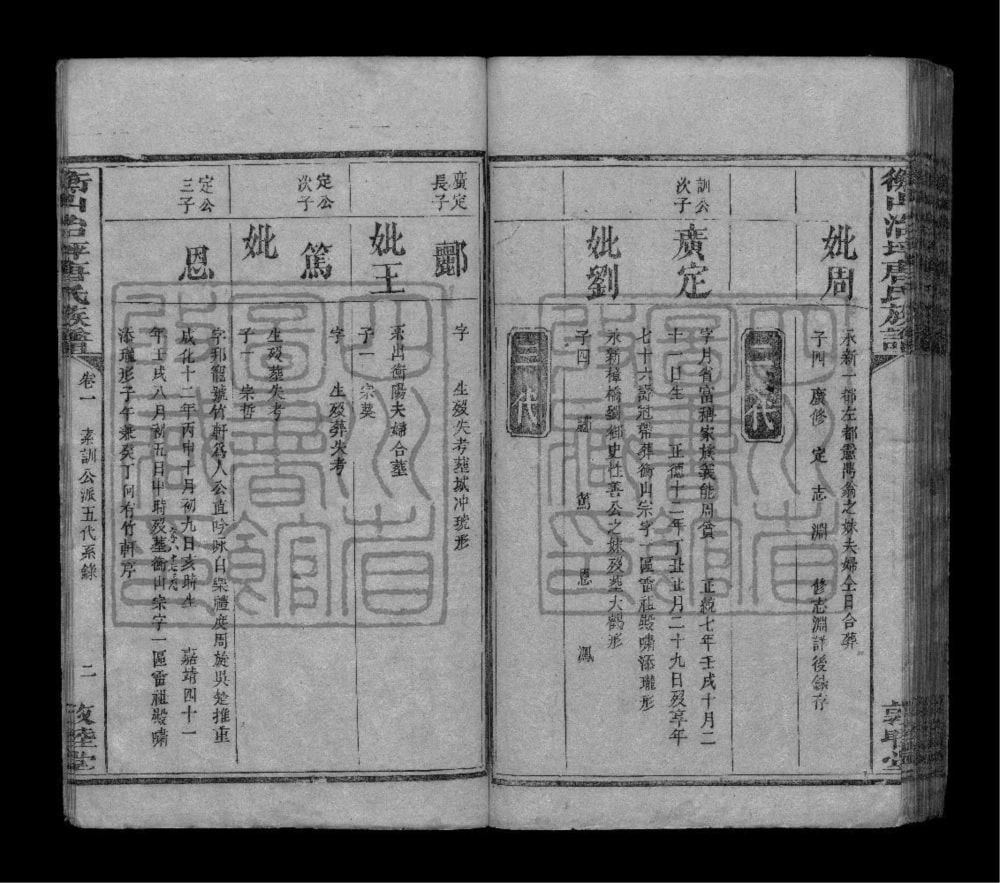 妣周
永新一都左都靈鳳翁之妹夫婦仝日合葬
子四 廣修 定 志 淵 修志淵詳後錄存
二代
訓公次子
廣定
字月省富稱家族義能周貧 正統七年壬戌十月二
十一日生 正德十二年丁丑正月二十九日歿享年
七十六壽冠帶葬衡山宗字一區雷祖殿嘯添瓏形
妣劉
永新樟橋劉御史性善公之妹歿塟大鶴形
子四 酃 篤 恩 鳳
三代
廣定長子
酃
字 生歿失考塟城冲琥形
妣王
系出衡陽夫婦合塟
子一 宗
定公次子
篤
字 生歿葬失考
妣
生歿葬失考
子一 宗哲
定公三子
恩
字邦寵號竹軒爲人公直吟咏白柴禮度周旋吳楚推重
成化十二年丙申十月初九日亥時生 嘉靖四十一
年壬戌八月初五日申時歿塟衡山宗字一區雷祖殿嘯
添瓏形子午兼癸丁向有竹軒序
衡山治坪唐氏族譜
卷一
素訓公派五代系錄
二
敦睦堂
山西省
圖書館